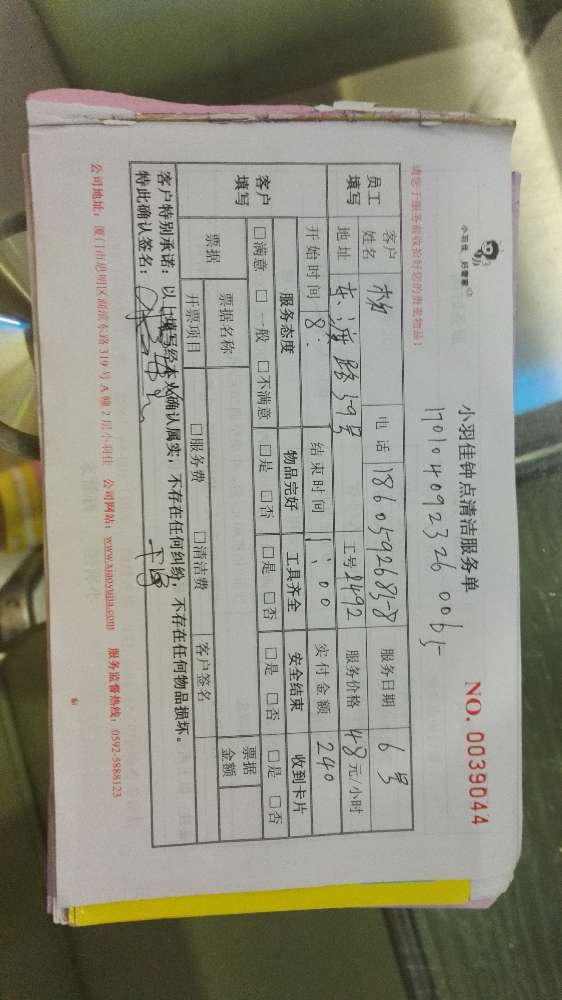 小羽佳 好管家
小羽佳钟点清洁服务单
NO. 0039044
请您于服务前收拾好您的贵重物品！
员工填写 客户姓名 杨 电话 服务日期 6号
地址 工号 2492 服务价格 48 元/小时
开始时间 8: 结束时间 1:00 实付金额 240
客户填写 服务态度 物品完好 工具齐全 安全结束 收到卡片
□满意 □一般 □不满意 □是 □否 □是 □否 □是 □否 □是 □否
票据 票据名称 票据金额
开票项目 □服务费 □清洁费 客户签名
客户特别承诺：以上填写经本人确认属实，不存在任何纠纷，不存在任何物品损坏。
特此确认签名：
公司地址：厦门市思明区湖滨东路 319 号 A 幢 2 层小羽佳 公司网站：www.xiaoyujia.com 服务监督热线：0592-5888123